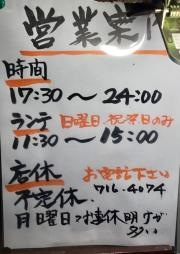 営業案内
時間
17:30〜24:00
ランチ 日曜日、祝祭日のみ
11:30〜15:00
店休 お電話下さい
716-4074
不定休
月曜日と連休明けが
多い